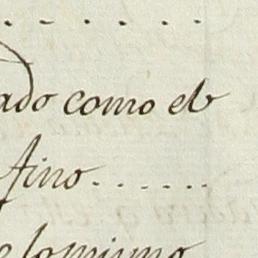 ado como el
fino......
lo mismo